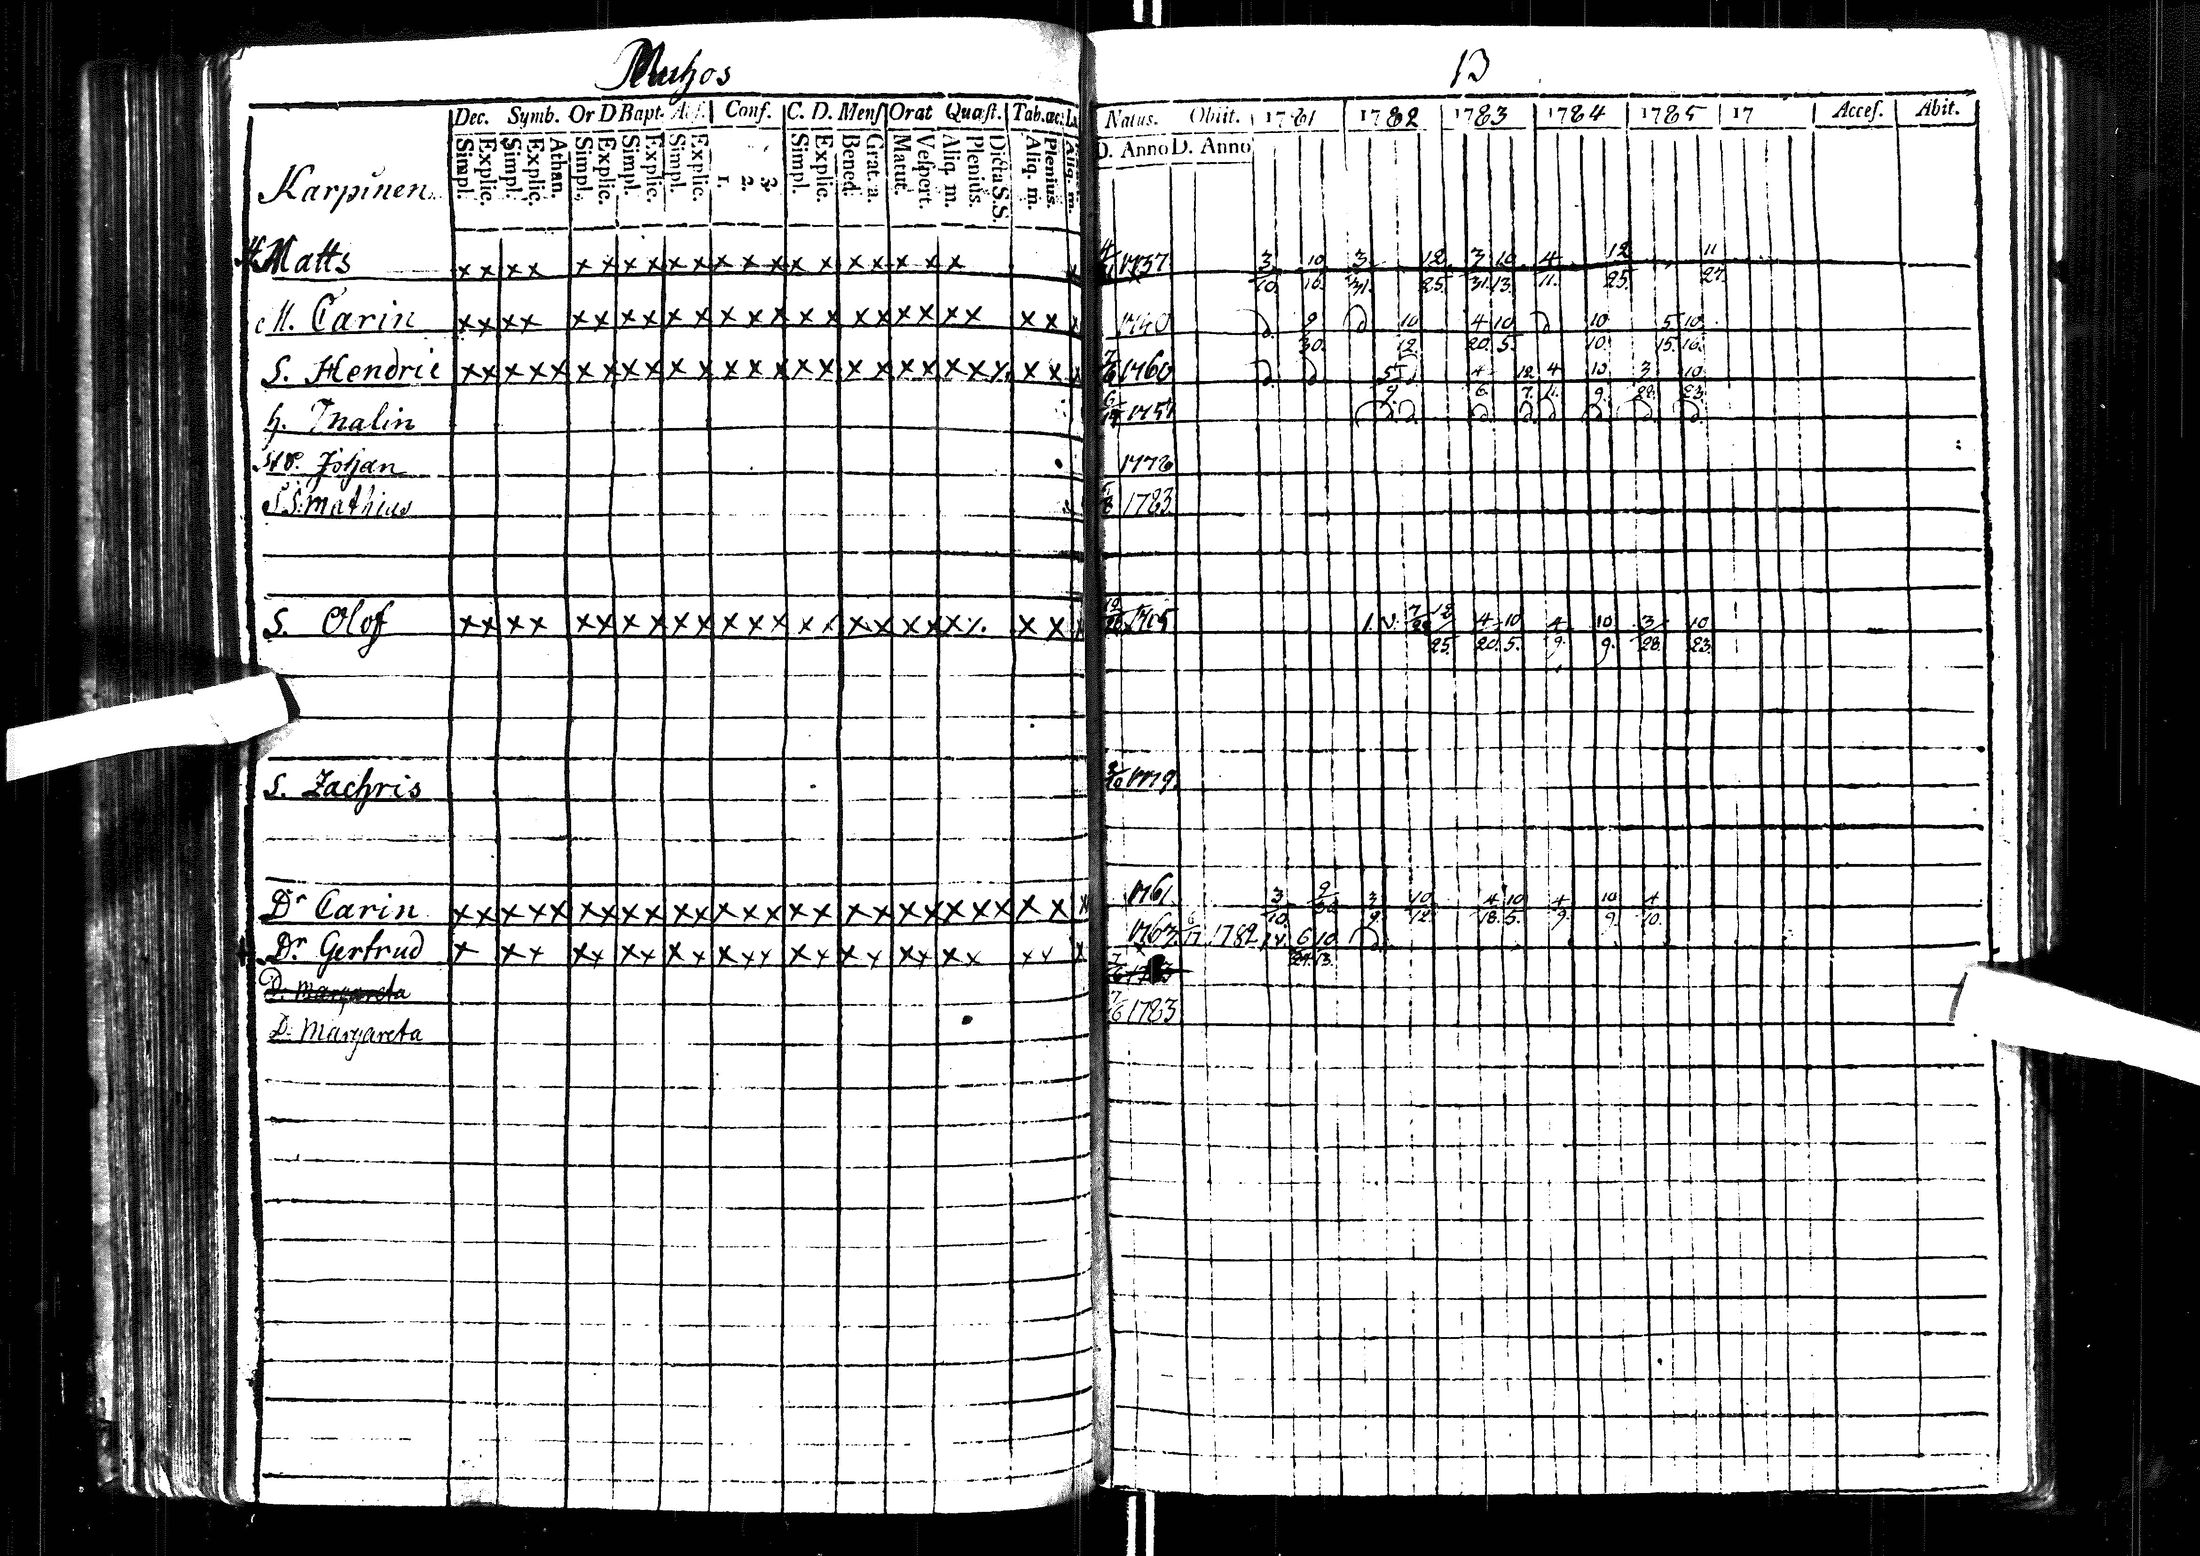 Muhos
13
Dec. Symb. Or D Bapt. Abs. Conf. C. D. Mens Orat Quæst. Tab. œc.
Natus. Obiit. 1781 1782 1783 1784 1785 17 Acces. Abit.
D. Anno D. Anno
Simpl. Explic. Simpl. Explic. Athan. Simpl. Explic. Simpl. Explic. Simpl. Explic. 1. 2. 3. Simpl. Explic. Bened. Grat. a. Matut. Vespert. Aliq. m. Plenius. Dicta S.S. Aliq. m. Plenius. Aliq. m.
Karpinen
Matts x x x x x x x x x x x x x x x x x x x x 1737 3/10. 10/16. 3/31. 12/25. 3/31. 10/13. 4/11. 12/25. 11/27.
M. Carin x x x x x x x x x x x x x x x x x x x x x x x 1740 9/30. 10/12. 4/20. 10/5. 10/10. 5/15. 10/16.
S. Hendric x x x x x x x x x x x x x x x x x x x x x x x 1760 4/6. 12/7. 4/11. 10/9. 3/28. 10/23.
h. Malin
Johan 1778
S.S. Mathius 1783
S. Olof x x x x x x x x x x x x x x x x x x x x x x x 1765 12/25. 4/20. 10/5. 4/9. 10/9. 3/28. 10/23.
S. Zachris 1779.
Dr Carin x x x x x x x x x x x x x x x x x x x x x x x x x 1761 3/10. 3/9. 10/12. 4/18. 10/5. 4/9. 10/9. 4/10.
Dr Gertrud x x x x x x x x x x x x x x x x x x x x x x 1763. 6/17 1782 6/24. 10/13.
D. Margareta
D. Margareta 7/6 1783